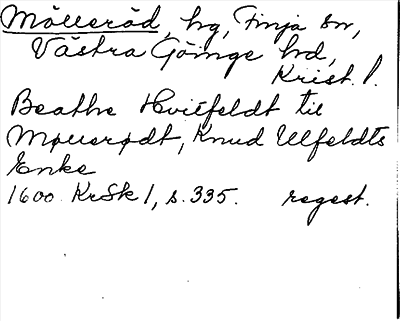 Mölleröd, hg, Finja sn,
Västra Göinge hd,
Krist. l.
Beathe Hvitfeldt til
Møllerødt, Knud Ulfeldts
Enke
1600 KrSk 1, s. 335. regest.